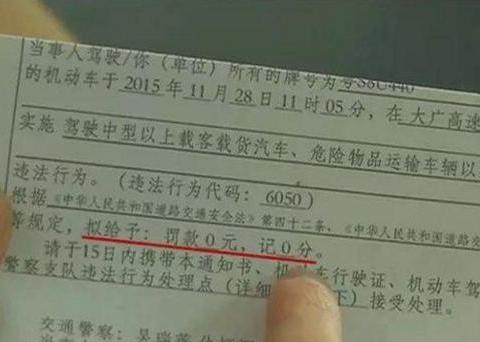 当事人驾驶/你（单位）所有的牌号为粤S8C440
的机动车于2015年11月28日11时05分，在大广高速
实施 驾驶中型以上载客载货汽车、危险物品运输车辆以
违法行为。（违法行为代码：6050）
根据《中华人民共和国道路交通安全法》第四十二条、《中华人民共和国道路交
等规定，拟给予：罚款0元，记0分。
请于15日内携带本通知书、机动车行驶证、机动车驾
警察支队违法行为处理点（详细 下）接受处理。
交通警察：吴瑞